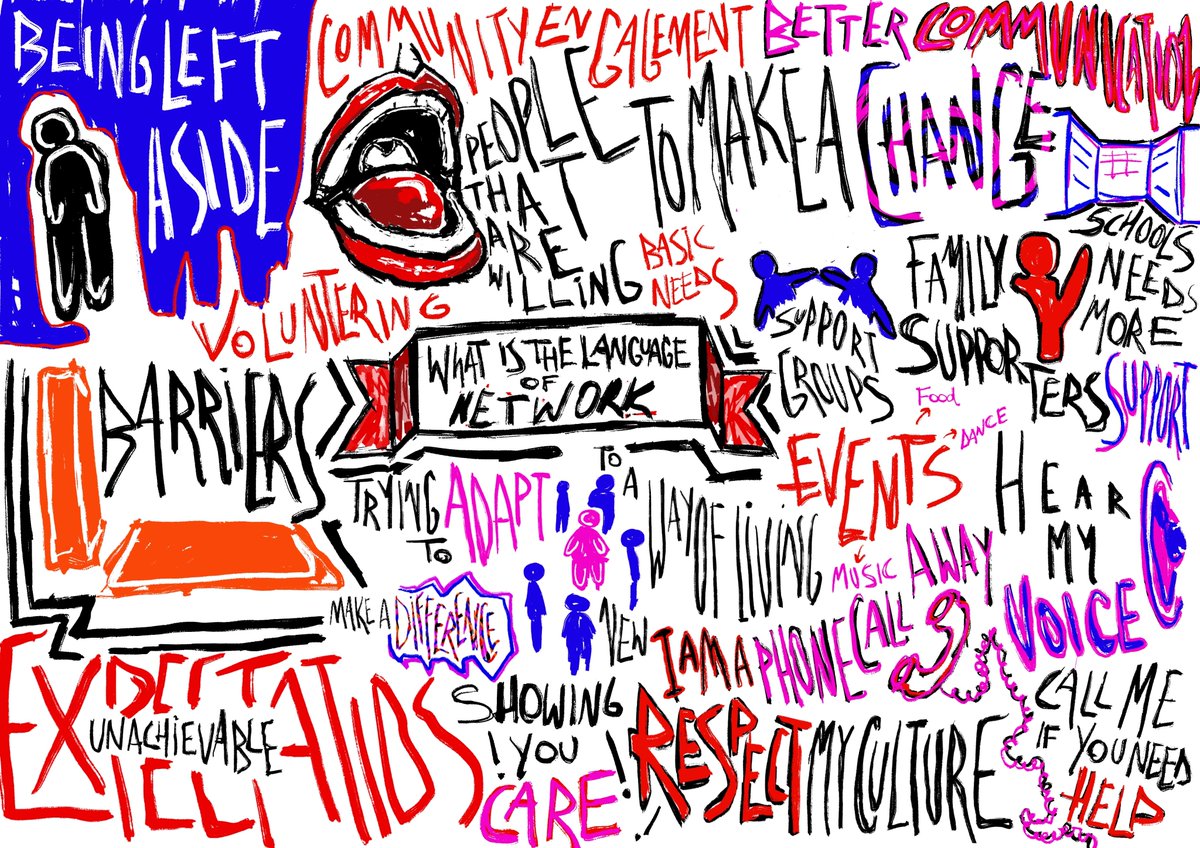 BEING LEFT
ASIDE
COMMUNITY ENGAGEMENT
BETTER COMMUNICATION
PEOPLE
THAT
ARE
WILLING
TO MAKE A CHANGE
SCHOOLS
NEEDS
MORE
SUPPORT
VOLUNTERING
BASIC
NEEDS
SUPPORT
GROUPS
FAMILY
SUPPORTERS
WHAT IS THE LANGUAGE
OF
NETWORK
BARRIERS
TRYING
TO
ADAPT
TO
A
NEW
WAY OF LIVING
EVENTS
Food
DANCE
MUSIC
HEAR
MY
VOICE
MAKE A DIFFERENCE
I AM A PHONE CALL AWAY
UNACHIEVABLE
SHOWING
! YOU !
CARE
RESPECT MY CULTURE
CALL ME
IF YOU NEED
HELP